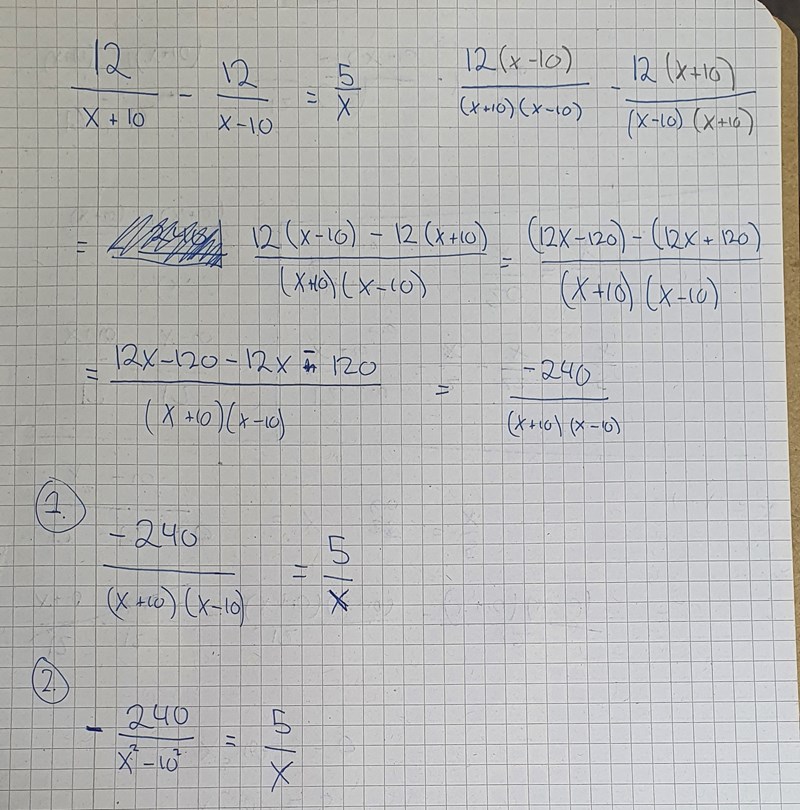 12/(x + 10) - 12/(x - 10) = 5/x    12(x-10)/((x+10)(x-10)) - 12(x+10)/((x-10)(x+10))
= (12(x-10) - 12(x+10))/((x+10)(x-10)) = ((12x-120) - (12x+120))/((x+10)(x-10))
= (12x-120-12x-120)/((x+10)(x-10)) = -240/((x+10)(x-10))
1.
-240/((x+10)(x-10)) = 5/x
2.
- 240/(x²-10²) = 5/x